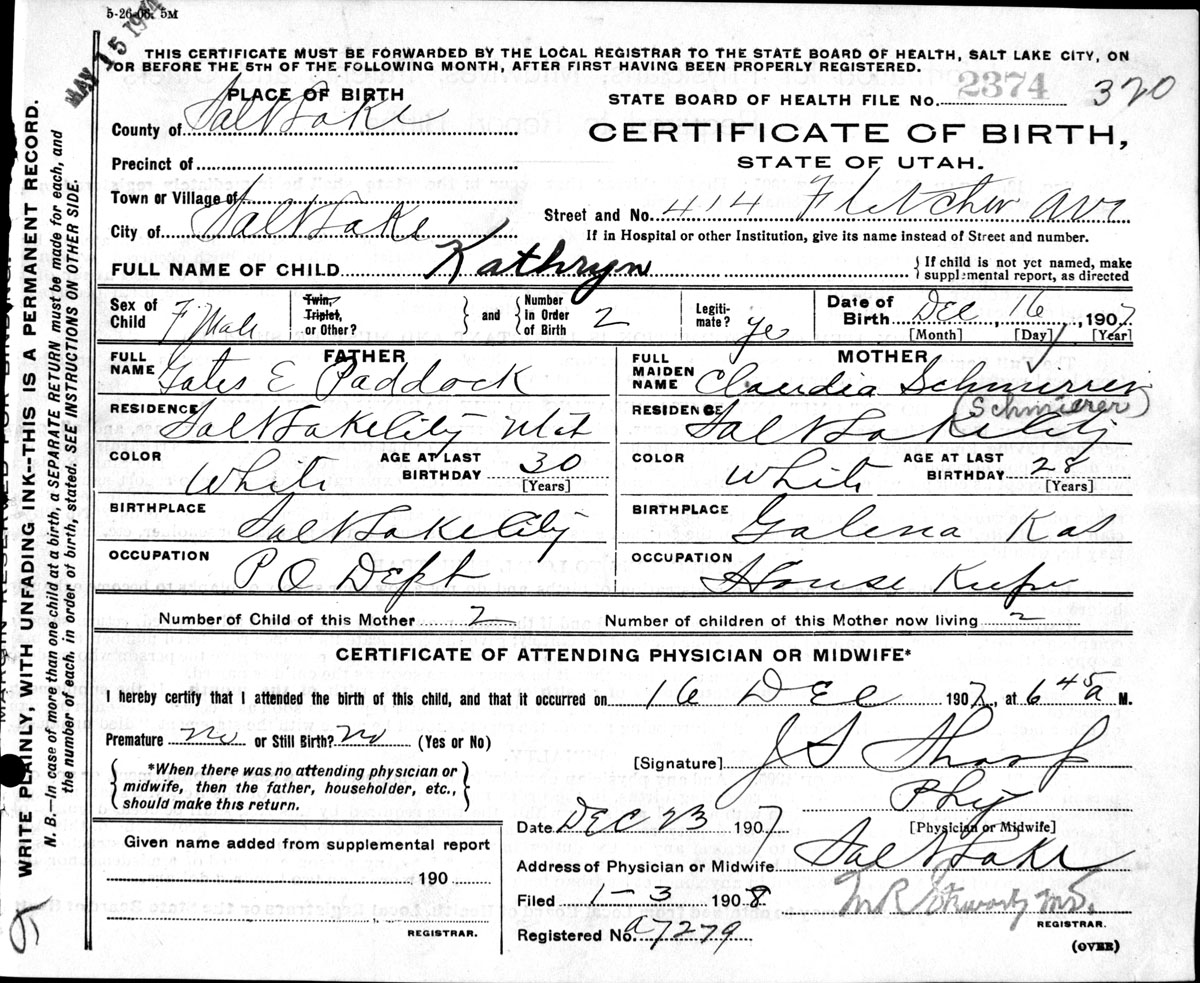 5-26-06. 5M
MAY 15 194
THIS CERTIFICATE MUST BE FORWARDED BY THE LOCAL REGISTRAR TO THE STATE BOARD OF HEALTH, SALT LAKE CITY, ON
OR BEFORE THE 5TH OF THE FOLLOWING MONTH, AFTER FIRST HAVING BEEN PROPERLY REGISTERED.
PLACE OF BIRTH
STATE BOARD OF HEALTH FILE NO. 2374 320
County of Salt Lake
CERTIFICATE OF BIRTH,
Precinct of
STATE OF UTAH.
Town or Village of
Street and No. 414 Fletcher Ave
City of Salt Lake
If in Hospital or other Institution, give its name instead of Street and number.
FULL NAME OF CHILD Kathryn
If child is not yet named, make
supplemental report, as directed
Sex of Child Female
Twin, Triplet, or Other?
and
Number in Order of Birth 2
Legiti-mate? Yes
Date of Birth Dec, 16, 1907
[Month] [Day] [Year]
FATHER
FULL NAME Gates E Paddock
MOTHER
FULL MAIDEN NAME Claudia Schmirrer
(Schmierer)
RESIDENCE Salt Lake City Utah
RESIDENCE Salt Lake City
COLOR White
AGE AT LAST BIRTHDAY 30
[Years]
COLOR White
AGE AT LAST BIRTHDAY 28
[Years]
BIRTHPLACE Salt Lake City
BIRTHPLACE Galena Kas
OCCUPATION P O Dept
OCCUPATION House Keeper
Number of Child of this Mother 2
Number of children of this Mother now living 2
CERTIFICATE OF ATTENDING PHYSICIAN OR MIDWIFE*
I hereby certify that I attended the birth of this child, and that it occurred on 16 Dec 1907, at 6 45 a M.
Premature No or Still Birth? No (Yes or No)
[Signature] J S Sharp
*When there was no attending physician or
midwife, then the father, householder, etc.,
should make this return.
Phy
[Physician or Midwife]
Date Dec 23 1907
Given name added from supplemental report
190
REGISTRAR.
Address of Physician or Midwife Salt Lake
Filed 1-3 1908.
M R Stewart M.D.
REGISTRAR.
Registered No. a7279
(OVER)
WRITE PLAINLY, WITH UNFADING INK--THIS IS A PERMANENT RECORD.
N. B.—In case of more than one child at a birth, a SEPARATE RETURN must be made for each, and
the number of each, in order of birth, stated. SEE INSTRUCTIONS ON OTHER SIDE.
MARGIN RESERVED FOR BINDING.